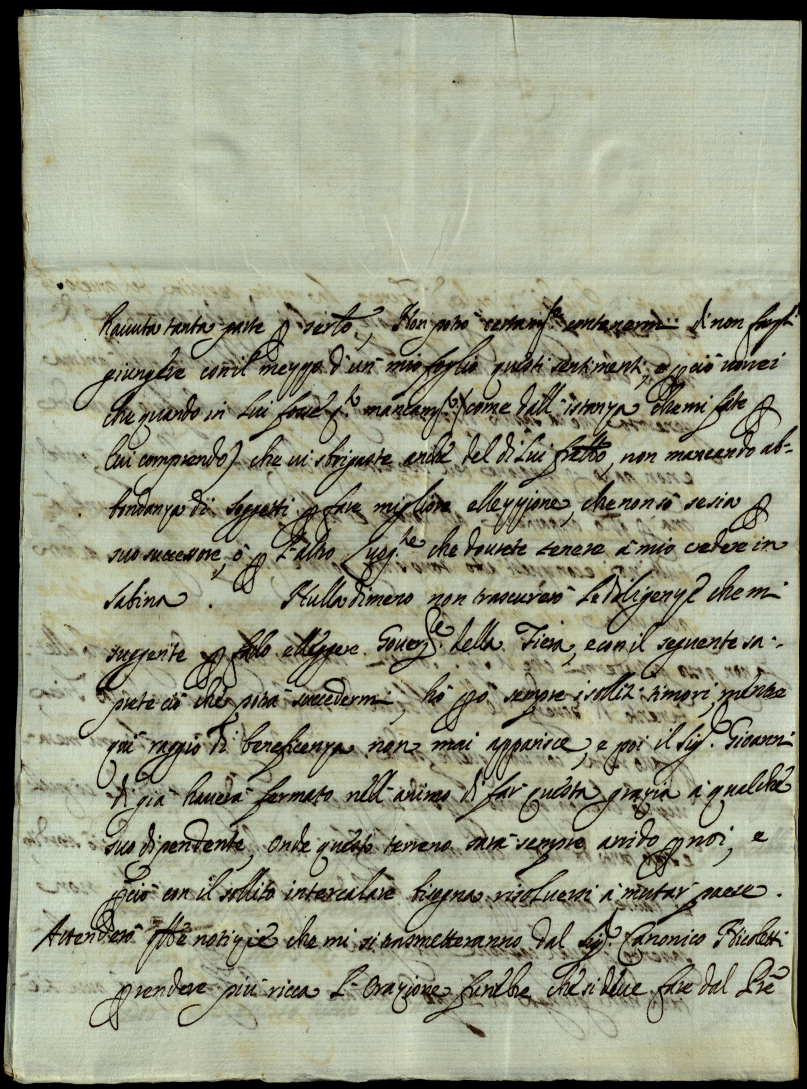 havuta tanta parte p serto, Non potrò certamte contenermi di non fargli
giungere con il mezzo d'un mio foglio questi sentimenti, e pciò vorrei
che quando in Lui fosse mancamto (come dall'istanza che mi fate p
Lui comprendo) che vi sbrigaste anche del di Lui frello, non mancando ab-
bondanza di soggetti p fare migliore elezzione, che non sò se sia p
suo successore, ò p l'altro che dovete tenere à mio credere in
Sabina. Nulladimeno non trascurerò le diligenze che mi
suggerite p farlo eleggere Goverre della Fiera, e con il seguente sa-
prete ciò che potrà succedermi, hò pò sempre i soliti timori, mentre
quì raggio di beneficenza non mai apparisce, e poi il Sigr. Giovanni
di già haverà fermato nell'animo di far questa grazia à qualche
suo dipendente, Onde questo terreno sarà sempre arrido p noi, e
pciò con il sollito intercalare bisogna risolversi à mutar paese.
Attenderò notizie che mi si trasmetteranno dal Sigr. Canonico Nicoletti
p rendere più ricca l'Orazione funebre che si deve fare dal Pre